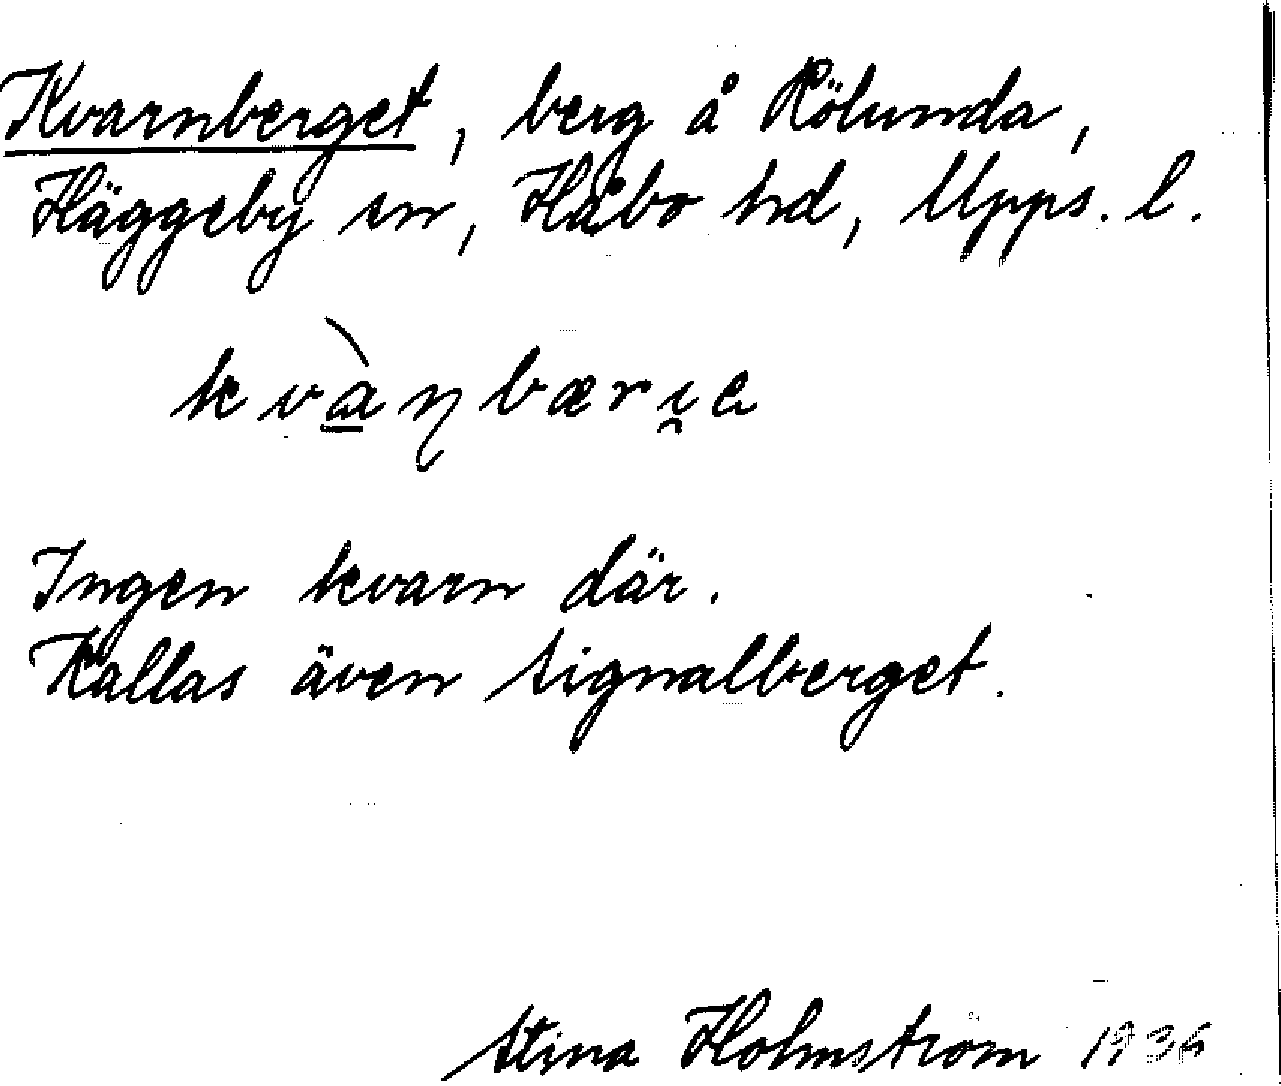 Kvarnberget, berg å Rölunda,
Häggeby sn, Håbo hd, Upps. l.
kvànbæri̯e
Ingen kvarn där.
Kallas även Signalberget.
Stina Holmström 1936